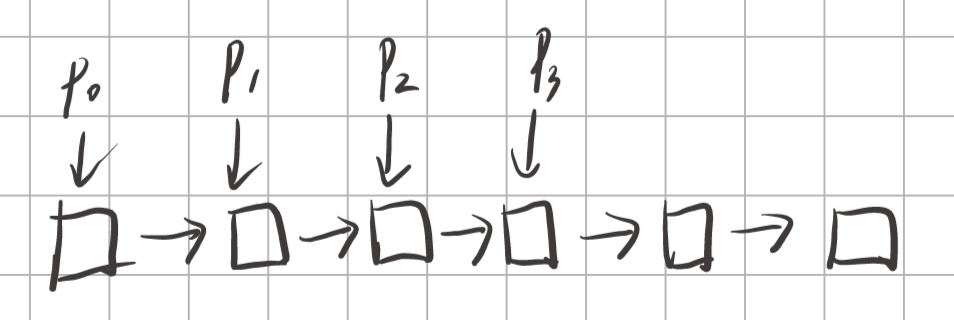 P₀ P₁ P₂ P₃